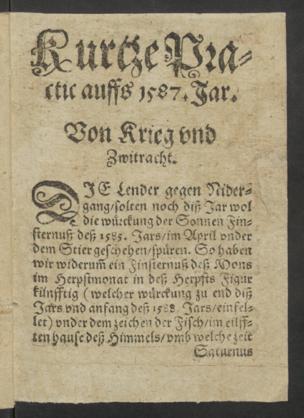 Kurtze Pra⸗
ctic auffs 1587. Jar.
Von Krieg vnd
Zwitracht.
DJE Lender gegen Nider⸗
gang/solten noch diß Jar wol
die würckung der Sonnen Fin⸗
sternuß deß 1585. Jars/im April vnder
dem Stier geschehen/spüren. So haben
wir widerum̃ ein Finsternuß deß Mons
im Herpstmonat in deß Herpsts Figur
künfftig (welcher würckung zu end diß
Jars vnd anfang deß 1588. Jars/einfel⸗
let) vnder dem zeichen der Fisch/im eilff⸗
ten hause deß Himmels/vmb welche zeit
Saturnus